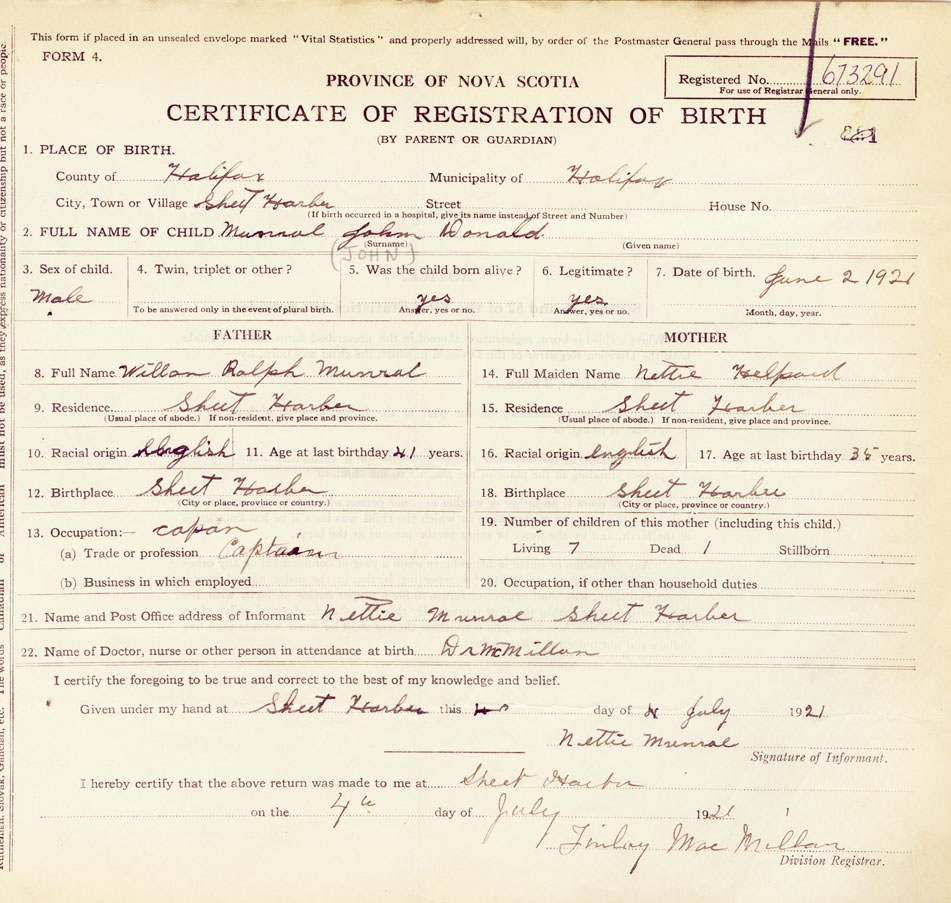 This form if placed in an unsealed envelope marked "Vital Statistics" and properly addressed will, by order of the Postmaster General pass through the Mails "FREE."
FORM 4.
PROVINCE OF NOVA SCOTIA
Registered No. 673291
For use of Registrar General only.
CERTIFICATE OF REGISTRATION OF BIRTH
(BY PARENT OR GUARDIAN)
1. PLACE OF BIRTH.
County of Halifax Municipality of Halifax
City, Town or Village Sheet Harber Street House No.
(If birth occurred in a hospital, give its name instead of Street and Number)
2. FULL NAME OF CHILD Munral John Donald
(Surname) (Given name)
(JOHN)
3. Sex of child. 4. Twin, triplet or other? 5. Was the child born alive? 6. Legitimate? 7. Date of birth. June 2 1921
Male yes yes
To be answered only in the event of plural birth. Answer, yes or no. Answer, yes or no. Month, day, year.
FATHER MOTHER
8. Full Name Ralph Munral 14. Full Maiden Name Nettie
9. Residence Sheet Harber 15. Residence Sheet Harber
(Usual place of abode.) If non-resident, give place and province. (Usual place of abode.) If non-resident, give place and province.
10. Racial origin English 11. Age at last birthday 41 years. 16. Racial origin english 17. Age at last birthday 35 years.
12. Birthplace Sheet Harber 18. Birthplace Sheet Harber
(City or place, province or country.) (City or place, province or country.)
13. Occupation:— capan 19. Number of children of this mother (including this child.)
(a) Trade or profession Captain Living 7 Dead 1 Stillborn
(b) Business in which employed 20. Occupation, if other than household duties
21. Name and Post Office address of Informant Nettie Munral Sheet Harber
22. Name of Doctor, nurse or other person in attendance at birth Dr McMillan
I certify the foregoing to be true and correct to the best of my knowledge and belief.
Given under my hand at Sheet Harber this day of July 1921
Nettie Munral
Signature of Informant.
I hereby certify that the above return was made to me at Sheet Harbor
on the 4th day of July 1921
Finlay Mac Millan
Division Registrar.
must not be used, as they express nationality or citizenship but not a race or people.
Ruthenian, Slovak, Galician, etc. The words Canadian or American